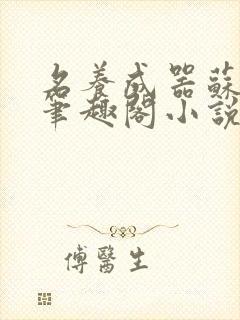 名養成器蘇
筆趣閣小說
傅醫生